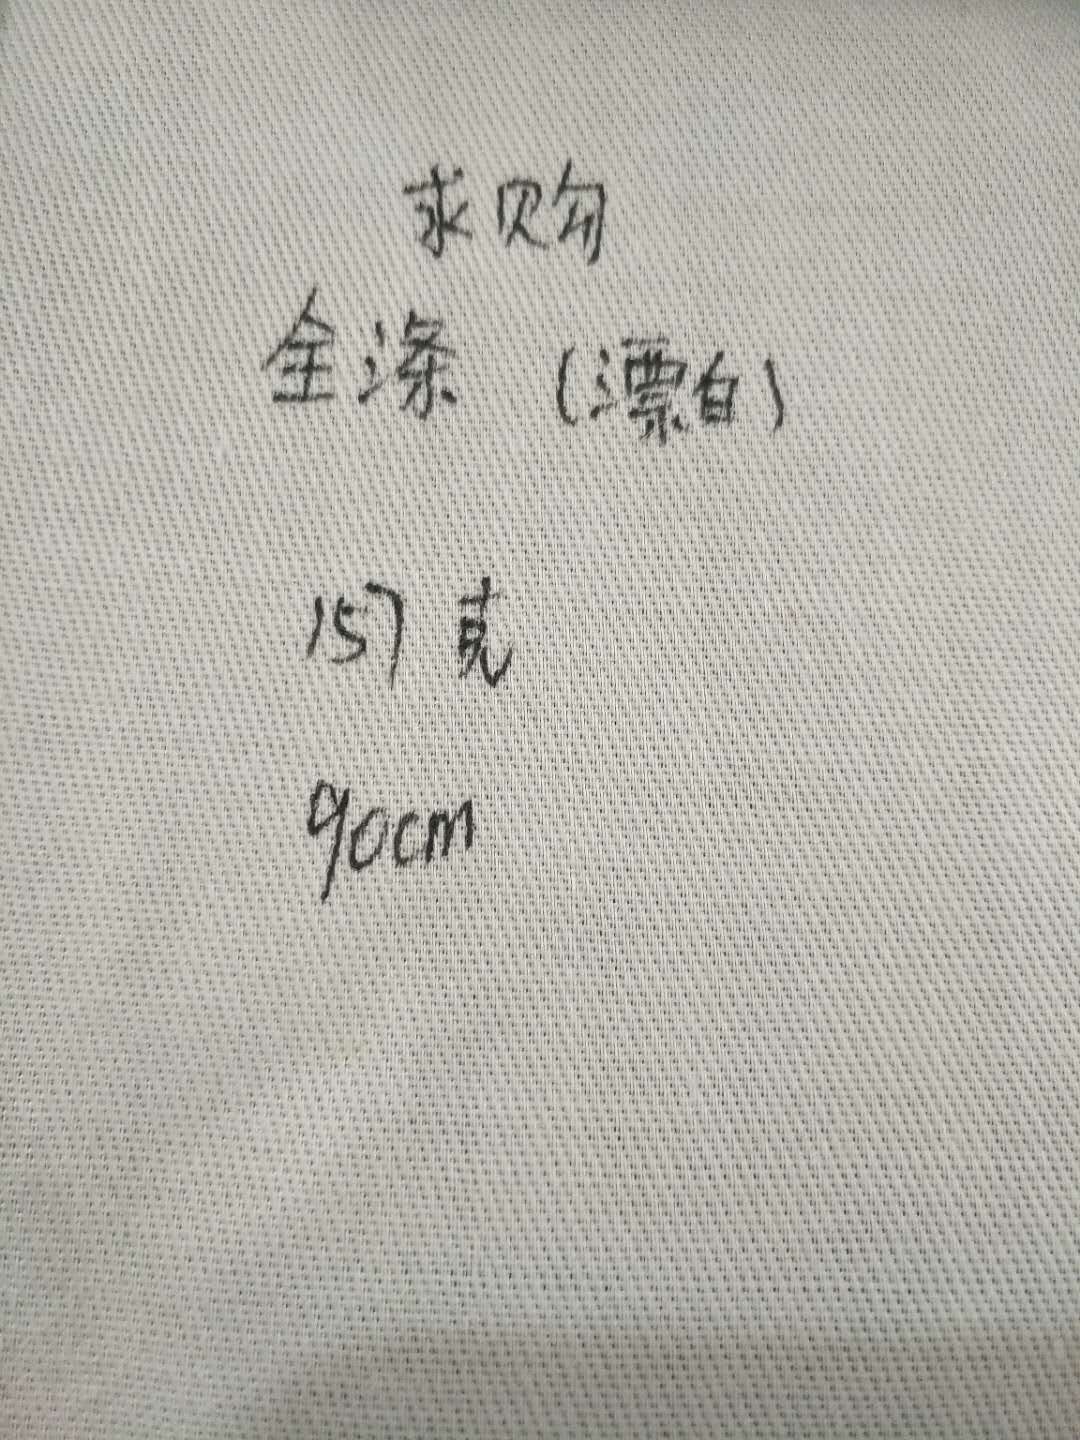 求购
全涤 (漂白)
157克
90cm